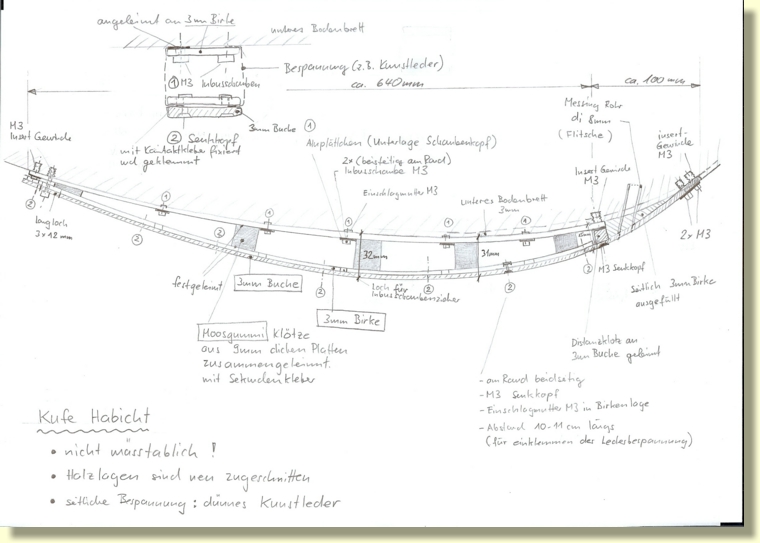 angeleimt an 3mm Birke
unteres Bodenbrett
Bespannung (z.B. Kunstleder)
① M3 Inbusschrauben
ca. 640mm
ca. 100mm
3mm Buche
② Senkkopf
mit Kontaktkleber fixiert
und geklemmt
M3
Insert Gewinde
①
Aluplättchen (Unterlage Schraubenkopf)
2x (beidseitig am Rand)
Inbusschraube M3
Einschlagmutter M3
Messing Rohr
di 8mm
(Flitsche)
Insert Gewinde
M3
insert-
Gewinde
M3
unteres Bodenbrett
3mm
①
①
①
①
①
②
Langloch
3x12mm
②
③
32mm
31mm
③
M3 Senkkopf
2x M3
festgeleimt
3mm Buche
②
Loch für
Inbusschraubenzieher
②
②
3mm Birke
seitlich 3mm Birke
ausgefüllt
Moosgummi Klötze
aus 9mm dicken Platten
zusammengeleimt
mit Sekundenkleber
Distanzklotz an
3mm Buche geleimt
- am Rand beidseitig
- M3 Senkkopf
- Einschlagmutter M3 in Birkenlage
- Abstand 10-11 cm längs
(für einklemmen der Lederbespannung)
Kufe Habicht
• nicht masstablich !
• Holzlagen sind neu zugeschnitten
• seitliche Bespannung : dünnes Kunstleder